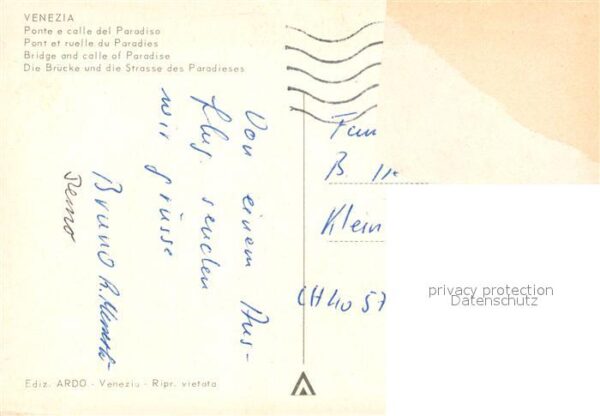 VENEZIA
Ponte e calle del Paradiso
Pont et ruelle du Paradies
Bridge and calle of Paradise
Die Brücke und die Strasse des Paradieses
Von einem Aus-
flug senden
wir grüsse
Bruno
Remo
Fam
B
Klein
CH 4057
privacy protection
Datenschutz
Ediz. ARDO - Venezia - Ripr. vietata